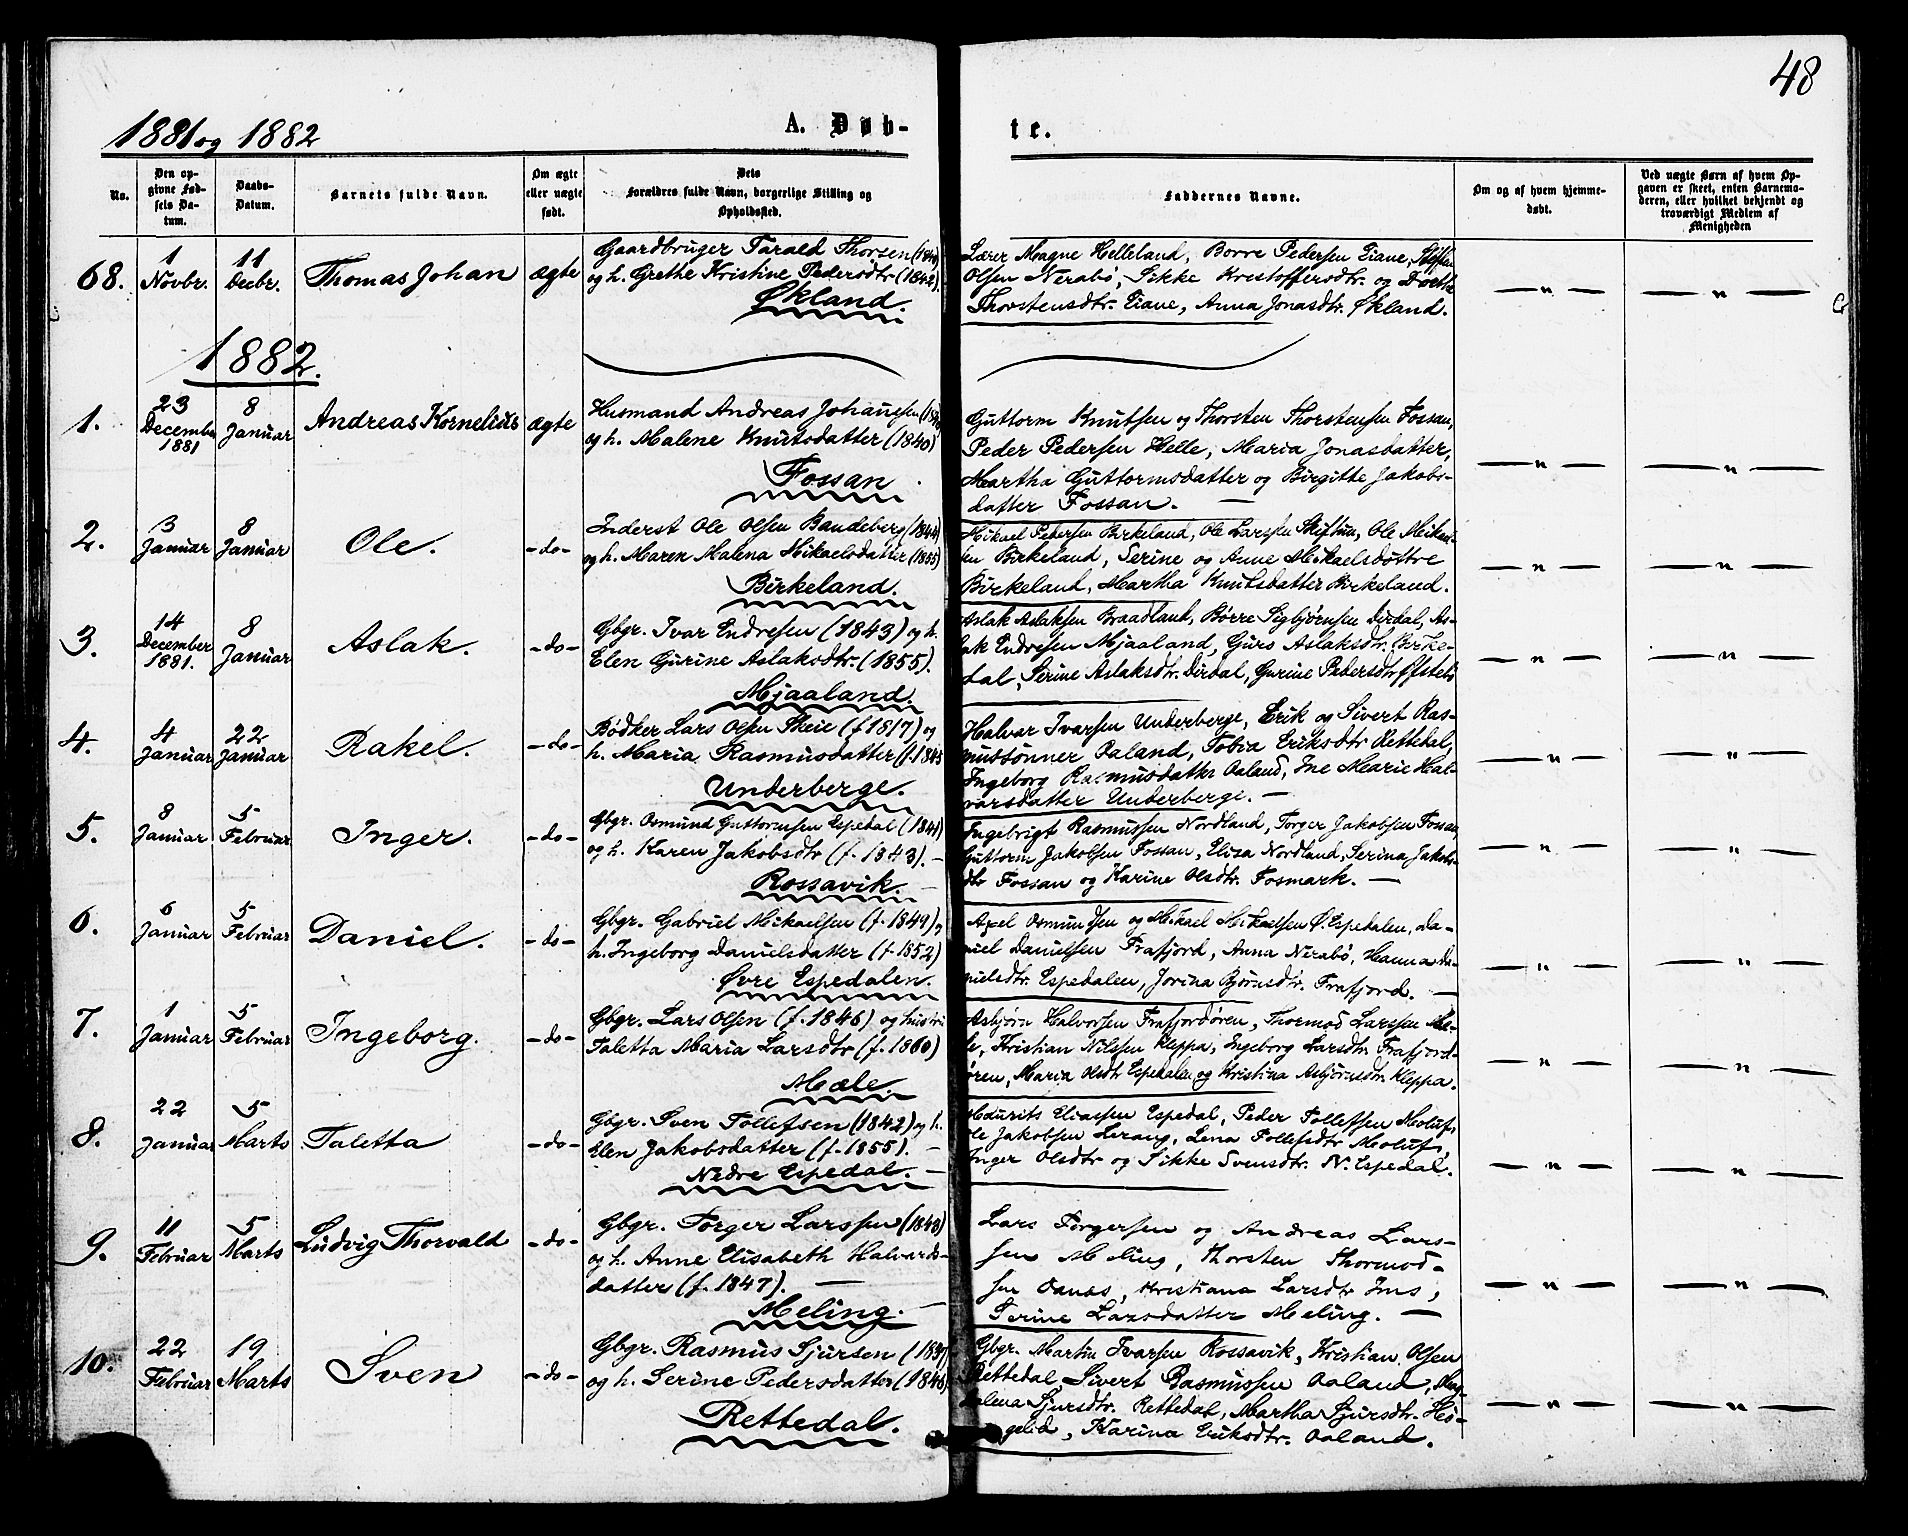 48
1881 og 1882
A. Døb-
te.
No.
Den op-
givne Fød-
sels Da-
tum.
Daabs-
Datum.
Barnets fulde Navn.
Om ægte
eller uægte
født.
Dets
Forældres fulde Navn, borgerlige Stilling og
Opholdssted.
Faddernes Navne.
Om og af hvem hjemme-
døbt.
Ved uægte Børn af hvem Op-
gaven er skeet, enten Barnemo-
deren, eller hvilket bekjendt og
troværdigt Medlem af
Menigheden
68.
1
Novbr.
11
Decbr.
Thomas Johan
ægte
Gaardbruger Tarald Thorsen
og h. Grethe Kristine Pedersdtr (1842).
Økland.
Lærer Magne Helleland, Borre Pedersen Eiane,
Olsen Nerabø, Sikke Kristoffersdtr. og
Thorstensdtr. Eiane, Anna Jonasdtr. Økland.
— " —
— " —
1882.
1.
23
December
1881
8
Januar
Andreas Kornelius
ægte
Husmand Andreas Johannesen
og h. Malene Knutsdatter (1840)
Fossan
Guttorm Knutsen og Thorsten Thorstensen Fossan,
Peder Pedersen Helle, Maria Jonasdatter,
Martha Guttormsdatter og Birgitte Jakobs-
datter Fossan. —
— " —
— " —
2.
3
Januar
8
Januar
Ole.
- do -
Inderst Ole Olsen Bandeberg (1844)
og h. Maren Malena Mikaelsdatter (1855)
Birkeland.
Mikael Pedersen Birkeland, Ole Larssen Skiftun, Ole Mikael-
sen Birkeland, Serine og Anne Mikaelsdøttre
Birkeland, Martha Knutsdatter Birkeland.
— " —
— " —
3.
14
December
1881.
8
Januar
Aslak.
- do -
Gbgr. Ivar Endresen (1843) og h.
Elen Gurine Aslaksdtr. (1855).
Mjaaland.
Aslak Aslaksen Braadland, Børre Sigbjørnsen Dirdal, As-
lak Endresen Mjaaland, Guro Aslaksdtr. Birke-
dal, Serine Aslaksdtr. Dirdal, Gurine Pedersdtr
— " —
— " —
4.
4
Januar
22
Januar
Rakel.
- do -
Bødker Lars Olsen Skeie (f 1817) og
h. Maria Rasmusdatter (f. 1845
Underberge.
Halvar Ivarsen Underberge, Erik og Sivert Ras-
mussønner Aaland, Tobia Eriksdtr Rettedal,
Ingeborg Rasmusdatter Aaland, Ine Marie Hal-
varsdatter Underberge. —
— " —
— " —
5.
8
Januar
5
Februar
Inger.
- do -
Gbgr. Osmund Guttormsen Espedal (1841)
og h. Karen Jakobsdtr (f. 1843). —
Rossavik. —
Ingebrigt Rasmussen Nordland, Torger Jakobsen Fossan,
Guttorm Jakobsen Fossan, Eliza Nordland, Serina Jakobs-
dtr Fossan og Karine Olsdtr. Fosmark. —
— " —
— " —
6.
6
Januar
5
Februar
Daniel.
- do -
Gbgr. Gabriel Mikaelsen (f. 1849) og
h. Ingeborg Danielsdatter (f. 1852)
Øvre Espedalen.
Axel Osmundsen og Mikael Mikaelsen Ø. Espedalen, Da-
niel Danielsen Frafjord, Anna Nerabø, Hanna Da-
nielsdtr. Espedalen, Jorina Bjørnsdtr. Frafjord. —
— " —
— " —
7.
1
Januar
5
Februar
Ingeborg.
- do -
Gbgr. Lars Olsen (f. 1846) og hustru
Taletta Maria Larsdtr (f. 1860)
Mæle.
Asbjørn Halvorsen Frafjordøren, Thormod Larssen Mæ-
le, Kristian Nilssen Kleppa, Ingeborg Larsdtr. Frafjord-
øren, Maria Olsdtr Espedalen og Kristina Asbjørnsdtr. Kleppa.
— " —
— " —
8.
22
Januar
5
Marts
Taletta
- do -
Gbgr. Sven Tollefsen (1842) og h.
Elen Jakobsdatter (f. 1855). —
Nedre Espedal. —
Maurits Eliassen Espedal, Peder Tollefsen Moluf,
Ole Jakobsen Lerang, Lena Tollefsdtr Moluf,
Inger Olsdtr og Sikke Svensdtr. N. Espedal.
— " —
— " —
9.
11
Februar
5
Marts
Ludvig Thorvald
- do -
Gbgr. Torger Larssen (1848)
og h. Anne Elisabeth Halvards-
datter (f. 1847). —
Meling. —
Lars Torgersen og Andreas Lars-
sen Meling, Thorsten Thormod-
sen Oanæs, Kristiana Larsdtr Ims,
Serine Larsdatter Meling. —
— " —
— " —
10.
22
Februar
19
Marts
Sven
- do -
Gbgr. Rasmus Sjursen (1837)
og h. Serine Pedersdatter (1846)
Rettedal.
Gbgr. Martin Ivarsen Rossavik, Kristian Olsen
Rettedal, Sivert Rasmussen Aaland, Mag-
dalena Sjursdtr. Rettedal, Martha Sjursdtr. Hø-
gelid, Karina Eriksdtr. Aaland.
— " —
— " —